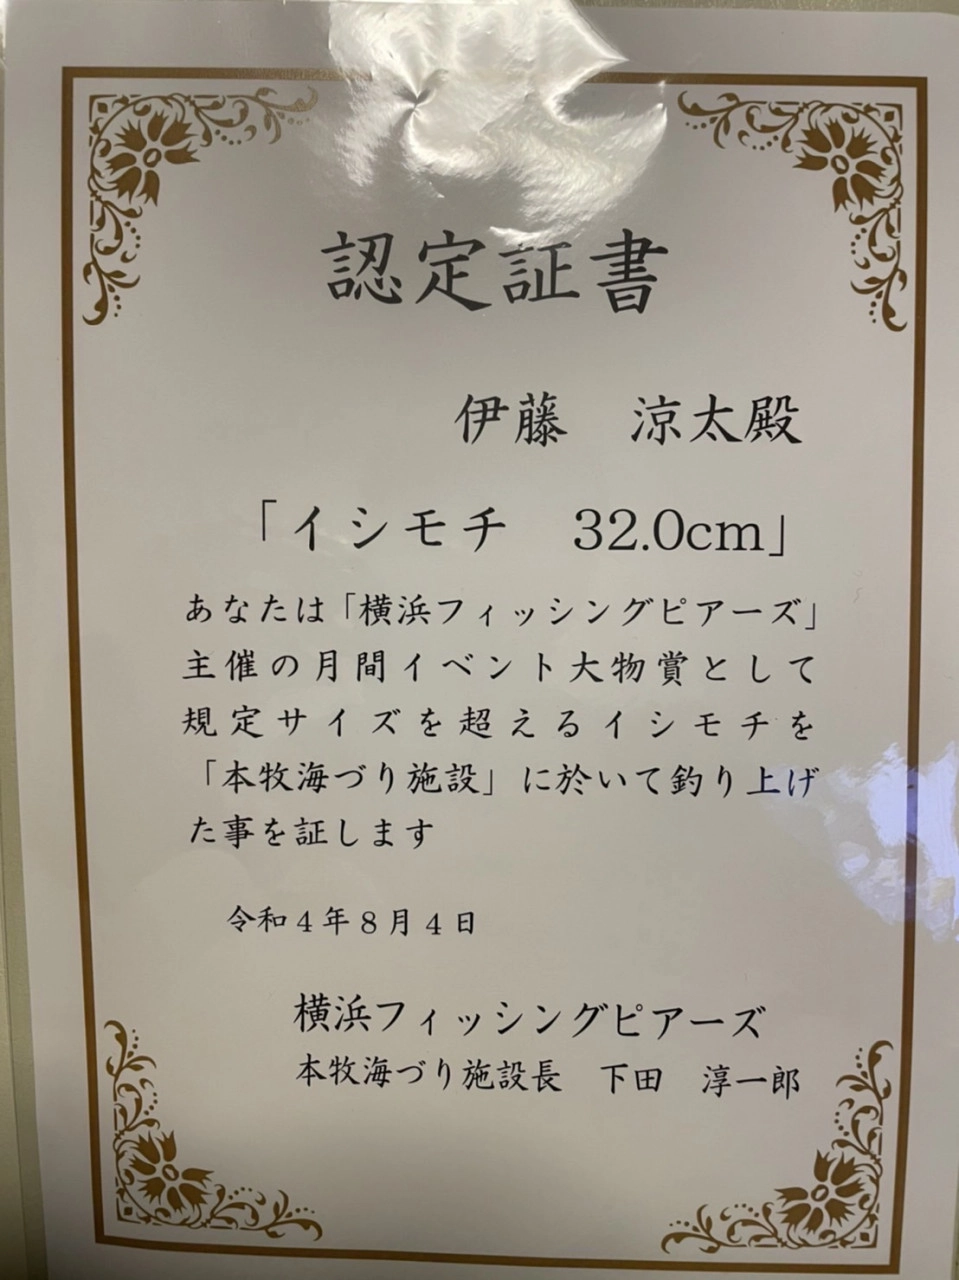 認定証書
伊藤　涼太殿
「イシモチ　32.0cm」
あなたは「横浜フィッシングピアーズ」
主催の月間イベント大物賞として
規定サイズを超えるイシモチを
「本牧海づり施設」に於いて釣り上げ
た事を証します
令和４年８月４日
横浜フィッシングピアーズ
本牧海づり施設長　下田　淳一郎